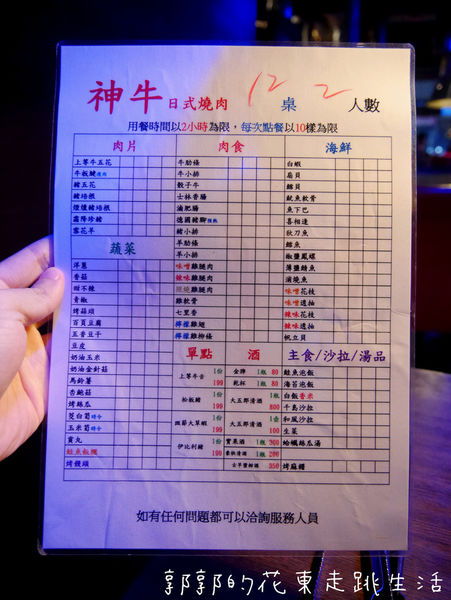 神牛日式燒肉 12 桌 2 人數
用餐時間以2小時為限，每次點餐以10樣為限
肉片
上等牛五花
牛板腱
豬五花
豬培根
煙燻豬培根
霜降珍豬
雪花羊
蔬菜
洋蔥
香菇
甜不辣
青椒
烤蒜頭
百頁豆腐
五香豆干
豆皮
奶油玉米
奶油金針菇
馬鈴薯
杏鮑菇
烤絲瓜
茭白筍時令
玉米筍時令
貢丸
鮭魚飯糰
烤饅頭
肉食
牛肋條
牛小排
骰子牛
士林香腸
滷肥腸
德國豬腳
豬小排
羊肋條
羊小排
味噌雞腿肉
辣味雞腿肉
雞腿肉
雞軟骨
七里香
檸檬雞翅
檸檬雞柳條
海鮮
白蝦
扇貝
鯖貝
魷魚軟骨
魚下巴
喜相逢
秋刀魚
鱈魚
椒鹽鳳螺
薄鹽鯖魚
蒲燒魚
味噌花枝
味噌透抽
辣味花枝
辣味透抽
帆立貝
單點
上等牛舌 1份 199
松板豬 1份 199
豉蒜大草蝦 1份 199
伊比利豬 1份 199
酒
金牌 1瓶 80
乾杯 1瓶 80
大五郎清酒 1瓶 800
大五郎清酒 1壺 100
實果酒 1瓶 300
1瓶 200
350
主食/沙拉/湯品
鮭魚泡飯
海苔泡飯
白飯香米
千島沙拉
和風沙拉
生菜
蛤蠣絲瓜湯
烤麻糬
如有任何問題都可以洽詢服務人員
郭郭的花東走跳生活